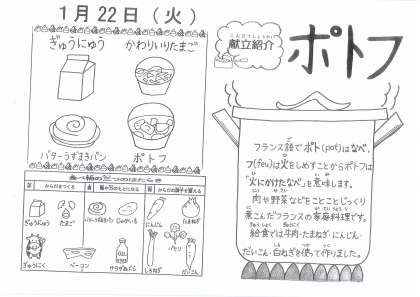 1月22日（火）
ぎゅうにゅう
かわりいりたまご
バターうずまきパン
ポトフ
食べ物の三つのはたらき
赤 からだをつくる
黄 熱や力のもとになる
緑 からだの調子を整える
ぎゅうにゅう
たまご
ぎゅうにく
ベーコン
バターうずまきパン
じゃがいも
サラダあぶら
にんじん
たまねぎ
パセリ
しろねぎ
だいこん
こんだてしょうかい
献立紹介
ポトフ
フランス語でポト(pot)はなべ、
フ(feu)は火をしめすことからポトフは
「火にかけたなべ」を意味します。
肉や野菜などをことことじっくり
煮こんだフランスの家庭料理です。
給食では牛肉・たまねぎ・にんじん・
だいこん・白ねぎを使って作りました。